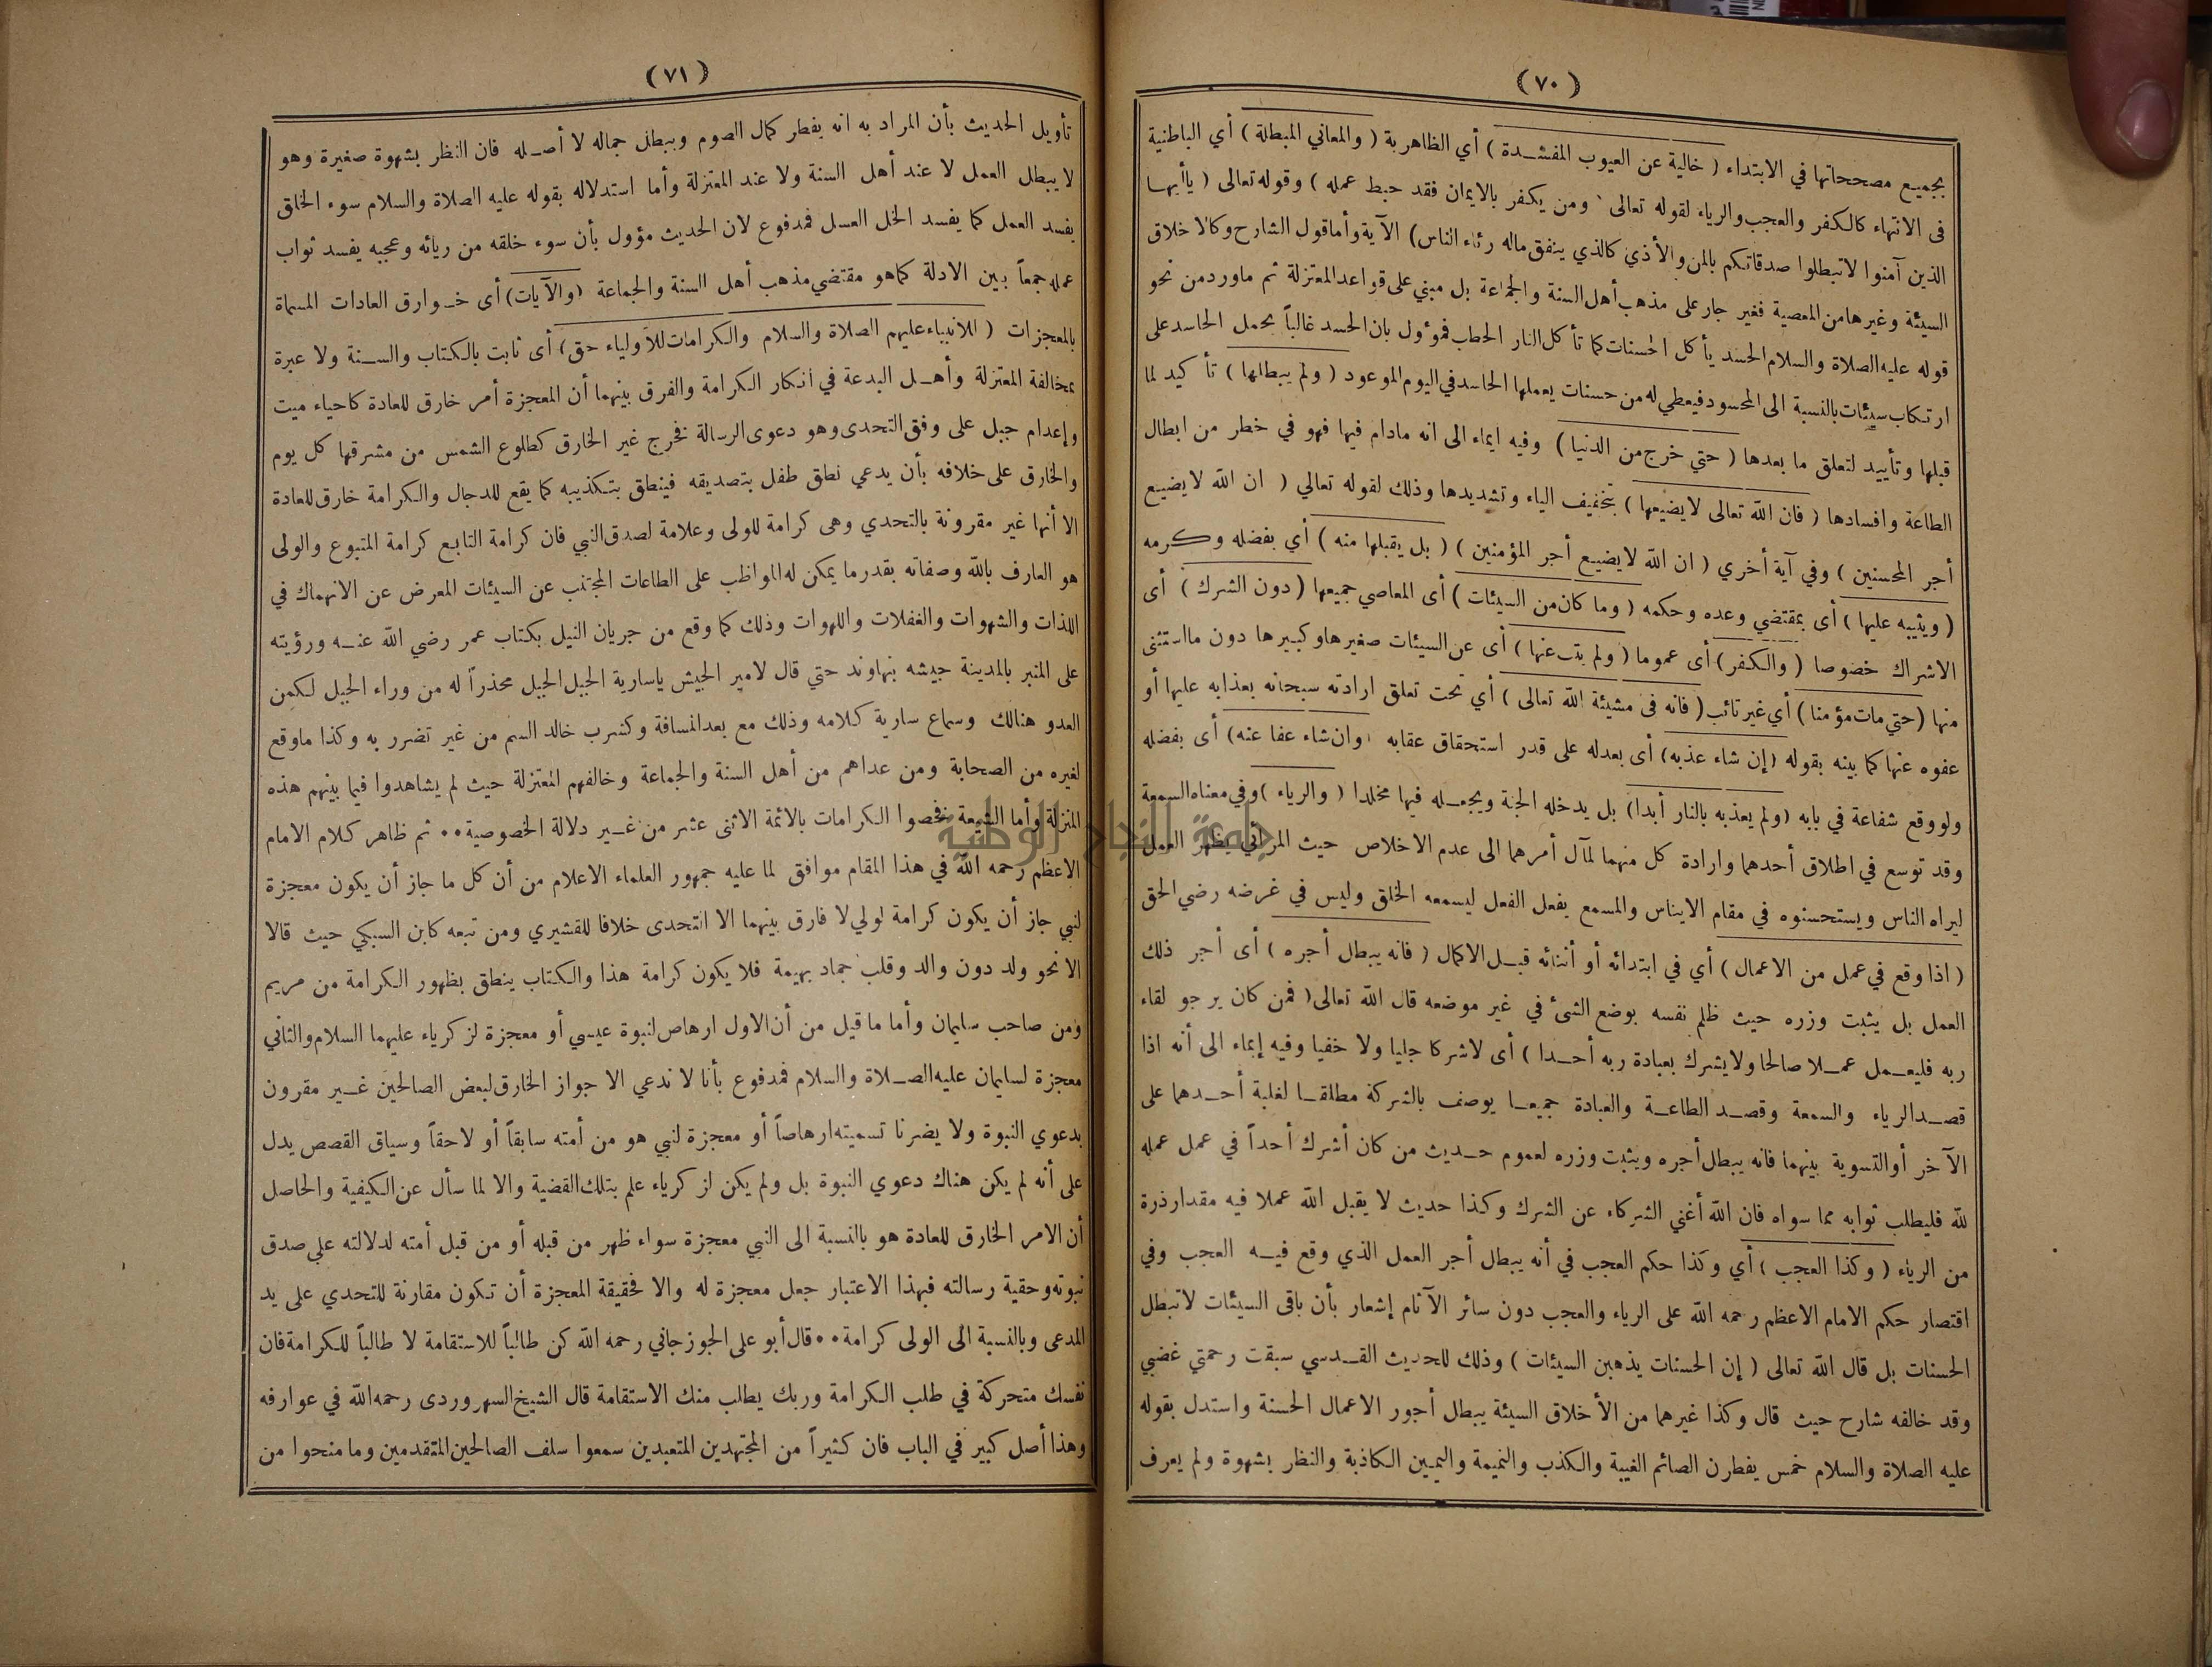 (٧٠)
بجميع مصححاتها في الابتداء ( خالية عن العيوب المفسدة ) أي الظاهرية ( والمعاني المبطلة ) أي الباطنية
فى الانتهاء كالكفر والعجب والرياء لقوله تعالى ومن يكفر بالايمان فقد حبط عمله ) وقوله تعالى ( ياأيها
الذين آمنوا لاتبطلوا صدقاتكم بالمن والأذي كالذي ينفق ماله رئاء الناس) الآية وأماقول الشارح وكالاخلاق
السيئة وغيرهامن المعصية فغير جار على مذهب أهل السنة والجماعة بل مبني على قواعد المعتزلة ثم ماورد من نحو
قوله عليه الصلاة والسلام الحسد يأكل الحسنات كما تأكل النار الحطب فمؤول بان الحسد غالباً يحمل الحاسد على
ارتكاب سيئات بالنسبة الى المحسود فيعطي له من حسنات يعملها الحاسد في اليوم الموعود ( ولم يبطلها ) تأكيد لما
قبلها وتأييد لتعلق ما بعدها ( حتي خرج من الدنيا ) وفيه ايماء الى انه مادام فيها فهو في خطر من ابطال
الطاعة وافسادها ( فان الله تعالى لايضيعها ) بتخفيف الياء وتشديدها وذلك لقوله تعالي ( ان الله لايضيع
أجر المحسنين ) وفي آية أخري ( ان الله لايضيع أجر المؤمنين ) ( بل يقبلها منه ) أي بفضله وكرمه
( ويثيبه عليها ) أى بمقتضي وعده وحكمه ( وما كان من السيئات ) أى المعاصي جميعها ( دون الشرك ) أى
الاشراك خصوصا ( والكفر ) أى عموما ( ولم يتب عنها ) أى عن السيئات صغيرها وكبيرها دون مااستثنى
منها ( حتي مات مؤمنا ) أي غير تائب ( فانه فى مشيئة الله تعالى ) أي تحت تعلق ارادته سبحانه بعذابه عليها أو
عفوه عنها كما بينه بقوله ( إن شاء عذبه ) أى بعدله على قدر استحقاق عقابه ( وان شاء عفا عنه ) أى بفضله
ولو وقع شفاعة في بابه ( ولم يعذبه بالنار أبدا ) بل يدخله الجنة ويجعله فيها مخلدا ( والرياء ) وفي معناه السمعة
وقد توسع في اطلاق أحدهما وارادة كل منهما لمآل أمرهما الى عدم الاخلاص حيث المرائي يظهر العمل
ليراه الناس ويستحسنوه في مقام الايناس والمسمع يفعل الفعل ليسمعه الخلق وليس في غرضه رضي الحق
( اذا وقع في عمل من الاعمال ) أي في ابتدائه أو أثنائه قبل الاكمال ( فانه يبطل أجره ) أى أجر ذلك
العمل بل يثبت وزره حيث ظلم نفسه بوضع الشئ في غير موضعه قال الله تعالى ( فمن كان يرجو لقاء
ربه فليعمل عملا صالحا ولايشرك بعبادة ربه أحدا ) أى لاشركا جليا ولا خفيا وفيه إيماء الى أنه اذا
قصد الرياء والسمعة وقصد الطاعة والعبادة جميعا يوصف بالشركة مطلقا لغلبة أحدهما على
الآخر أو التسوية بينهما فانه يبطل أجره ويثبت وزره لعموم حديث من كان أشرك أحداً في عمل عمله
لله فليطلب ثوابه مما سواه فان الله أغني الشركاء عن الشرك وكذا حديث لا يقبل الله عملا فيه مقدار ذرة
من الرياء ( وكذا العجب ) أي وكذا حكم العجب في أنه يبطل أجر العمل الذي وقع فيه العجب وفي
اقتصار حكم الامام الاعظم رحمه الله على الرياء والعجب دون سائر الآثام إشعار بأن باقى السيئات لاتبطل
الحسنات بل قال الله تعالى ( إن الحسنات يذهبن السيئات ) وذلك للحديث القدسي سبقت رحمتي غضبي
وقد خالفه شارح حيث قال وكذا غيرهما من الأخلاق السيئة يبطل أجور الاعمال الحسنة واستدل بقوله
عليه الصلاة والسلام خمس يفطرن الصائم الغيبة والكذب والنميمة واليمين الكاذبة والنظر بشهوة ولم يعرف
(٧١)
تأويل الحديث بأن المراد به انه يفطر كمال الصوم ويبطل جماله لا أصله فان النظر بشهوة صغيرة وهو
لا يبطل العمل لا عند أهل السنة ولا عند المعتزلة وأما استدلاله بقوله عليه الصلاة والسلام سوء الخلق
يفسد العمل كما يفسد الخل العسل فمدفوع لان الحديث مؤول بأن سوء خلقه من ريائه وعجبه يفسد ثواب
عمله جمعاً بين الادلة كماهو مقتضي مذهب أهل السنة والجماعة ( والآيات ) أى خوارق العادات المسماة
بالمعجزات ( للانبياء عليهم الصلاة والسلام والكرامات للأولياء حق ) أى ثابت بالكتاب والسنة ولا عبرة
بمخالفة المعتزلة وأهل البدعة في انكار الكرامة والفرق بينهما أن المعجزة أمر خارق للعادة كاحياء ميت
وإعدام جبل على وفق التحدى وهو دعوى الرسالة فخرج غير الخارق كطلوع الشمس من مشرقها كل يوم
والخارق على خلافه بأن يدعي نطق طفل بتصديقه فينطق بتكذيبه كما يقع للدجال والكرامة خارق للعادة
الا أنها غير مقرونة بالتحدي وهى كرامة للولى وعلامة لصدق النبي فان كرامة التابع كرامة المتبوع والولى
هو العارف بالله وصفاته بقدر ما يمكن له المواظب على الطاعات المجتنب عن السيئات المعرض عن الانهماك في
اللذات والشهوات والغفلات واللهوات وذلك كما وقع من جريان النيل بكتاب عمر رضي الله عنه ورؤيته
على المنبر بالمدينة جيشه بنهاوند حتي قال لامير الجيش ياسارية الجبل الجبل محذراً له من وراء الجبل لكمن
العدو هنالك وسماع سارية كلامه وذلك مع بعد المسافة وكشرب خالد السم من غير تضرر به وكذا ماوقع
لغيره من الصحابة ومن عداهم من أهل السنة والجماعة وخالفهم المعتزلة حيث لم يشاهدوا فيما بينهم هذه
المنزلة وأما الشيعة فخصوا الكرامات بالائمة الاثنى عشر من غير دلالة الخصوصية .. ثم ظاهر كلام الامام
الاعظم رحمه الله في هذا المقام موافق لما عليه جمهور العلماء الاعلام من أن كل ما جاز أن يكون معجزة
لنبي جاز أن يكون كرامة لولي لا فارق بينهما الا التحدى خلافا للقشيري ومن تبعه كابن السبكي حيث قالا
الا نحو ولد دون والد وقلب جماد بهيمة فلا يكون كرامة هذا والكتاب ينطق بظهور الكرامة من مريم
ومن صاحب سليمان وأما ما قيل من أن الاول ارهاص لنبوة عيسي أو معجزة لزكرياء عليهما السلام والثاني
معجزة لسليمان عليه الصلاة والسلام فمدفوع بأنا لا ندعي الا جواز الخارق لبعض الصالحين غير مقرون
بدعوي النبوة ولا يضرنا تسميته ارهاصاً أو معجزة لنبي هو من أمته سابقاً أو لاحقاً وسياق القصص يدل
على أنه لم يكن هناك دعوي النبوة بل ولم يكن لزكرياء علم بتلك القضية والا لما سأل عن الكيفية والحاصل
أن الامر الخارق للعادة هو بالنسبة الى النبي معجزة سواء ظهر من قبله أو من قبل أمته لدلالته على صدق
نبوته وحقية رسالته فبهذا الاعتبار جعل معجزة له والا فحقيقة المعجزة أن تكون مقارنة للتحدي على يد
المدعى وبالنسبة الى الولى كرامة .. قال أبو على الجوزجاني رحمه الله كن طالباً للاستقامة لا طالباً للكرامة فان
نفسك متحركة في طلب الكرامة وربك يطلب منك الاستقامة قال الشيخ السهروردى رحمه الله في عوارفه
وهذا أصل كبير في الباب فان كثيراً من المجتهدين المتعبدين سمعوا سلف الصالحين المتقدمين وما منحوا من
جامعة النجاح الوطنية